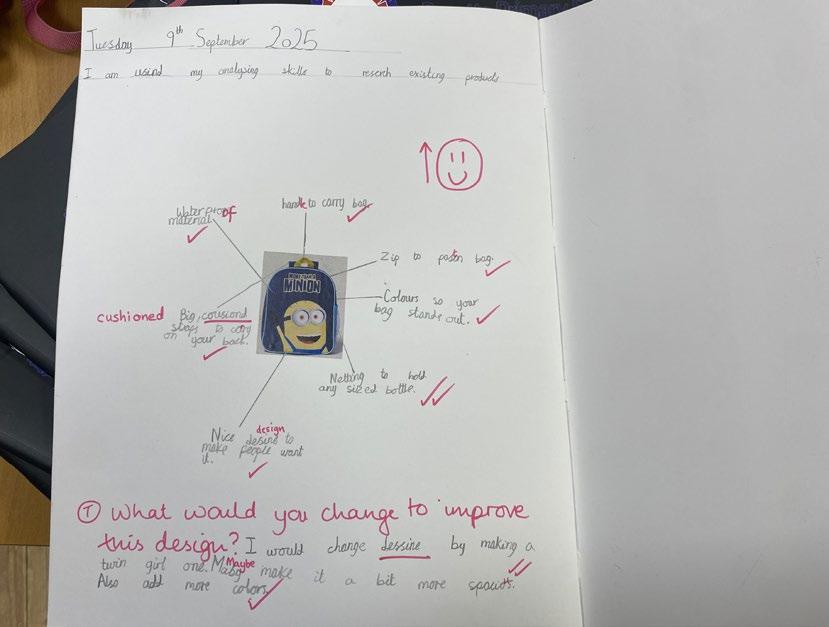 Tuesday 9th September 2025
I am usind my analysing skills to reserch existing products
handle to carry bag.
Waterproof
material.
Zip to pasten bag.
MINION
Colours so your
bag stands out.
cushioned Big, cousiond
straps to carry
on your back.
Netting to hold
any sized bottle.
design
Nice desine to
make people want
it.
T What would you change to improve
this design? I would change dessine by making a
twin girl one. Maybe make it a bit more spacius.
Also add more colors.